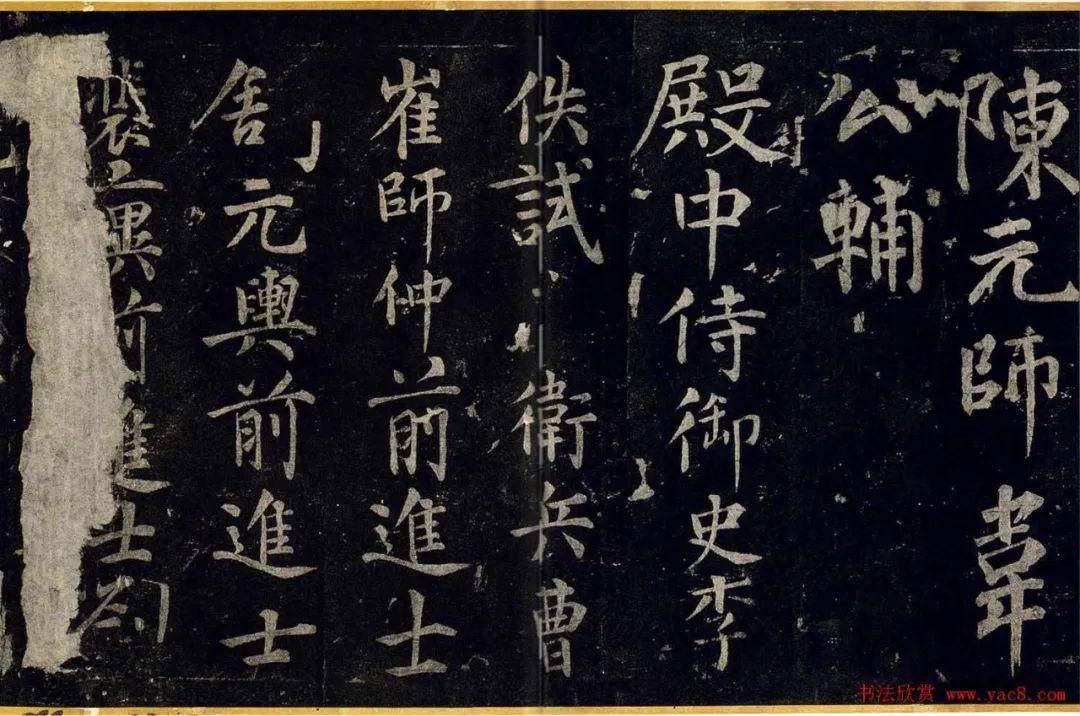 陳元師 韋
公輔
殿中侍御史李
佚試 衛兵曹
崔師仲前進士
舍元輿前進士
裴 異前進士
书法欣赏 www.yac8.com